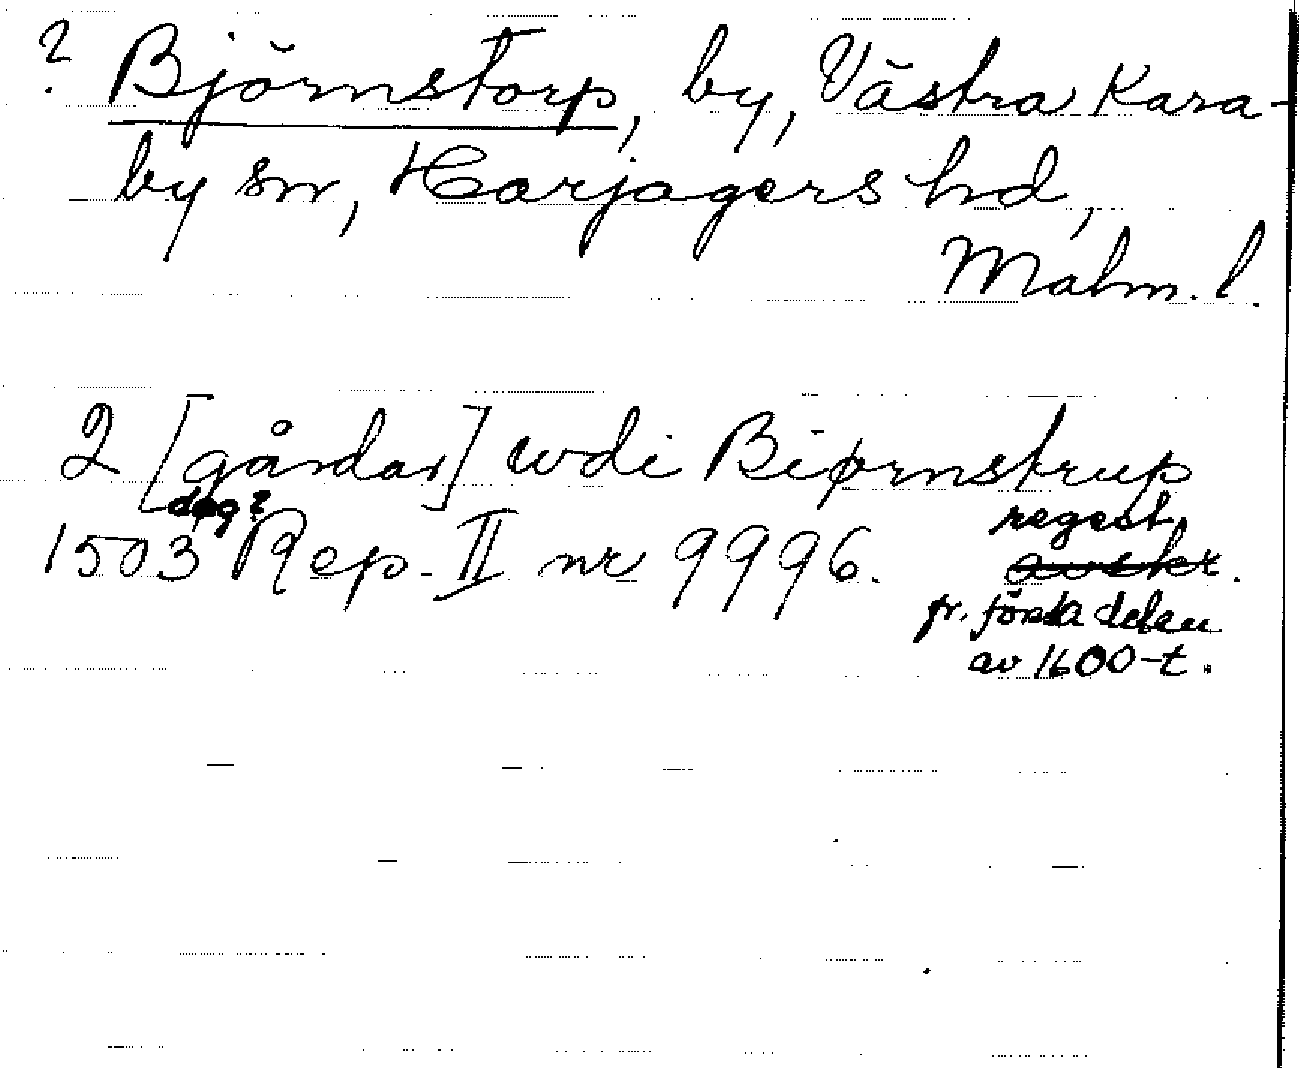 ? Björnstorp, by, Västra Kara-
by sn, Harjagers hd,
Malm. l.
2 [gårdar] wdi Biørnstrup
dag?
1503 Rep. II nr 9996.
regest
avskr.
fr. första delen
av 1600-t.